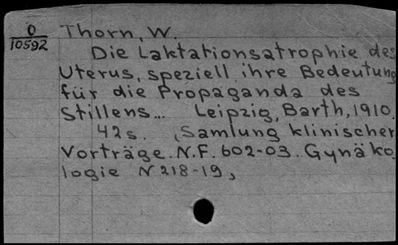 O
10592
Thorn, W.
Die Laktationsatrophie des
Uterus, speziell ihre Bedeutung
für die Propaganda des
Stillens... Leipzig, Barth, 1910.
42s. (Samlung klinischer
Vorträge. N.F. 602-03. Gynäko
logie N 218-19)